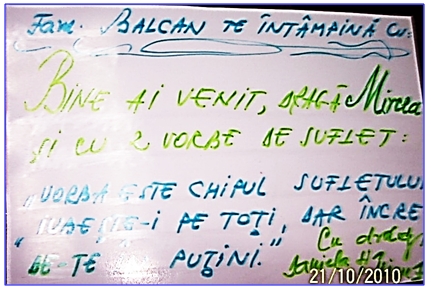 Fam. BALCAN TE ÎNTÂMPINĂ CU:
BINE AI VENIT, DRAGĂ Mircea
ŞI CU 2 VORBE DE SUFLET:
„VORBA ESTE CHIPUL SUFLETULUI
"IUBEŞTE-I PE TOŢI, DAR ÎNCRE
DE-TE PUŢINI."
Cu
Daniela
21/10/2010